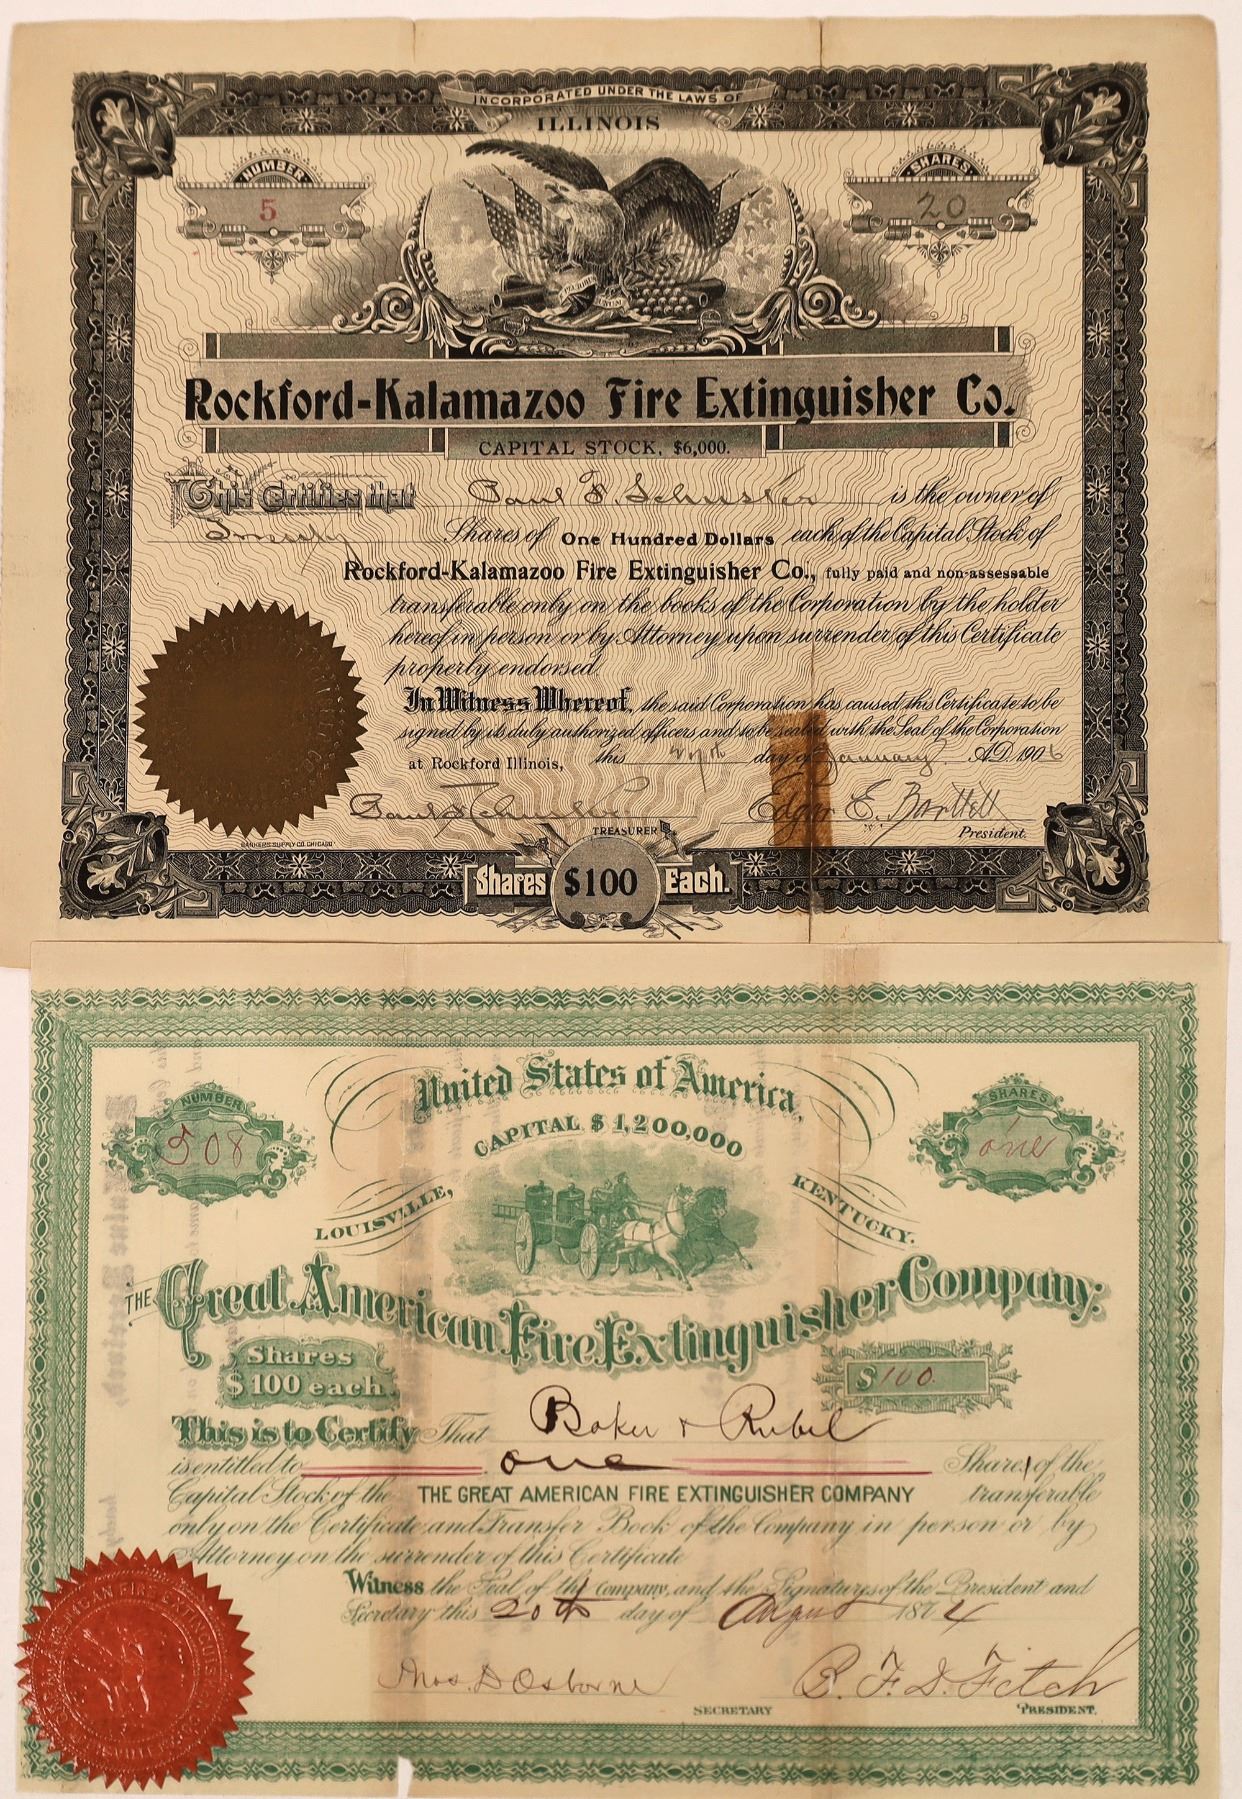 INCORPORATED UNDER THE LAWS OF
ILLINOIS
NUMBER
5
SHARES
20
Rockford-Kalamazoo Fire Extinguisher Co.
CAPITAL STOCK, $6,000.
This Certifies that Paul F Schuster is the owner of
Twenty Shares of One Hundred Dollars each of the Capital Stock of
Rockford-Kalamazoo Fire Extinguisher Co., fully paid and non-assessable
transferable only on the books of the Corporation by the holder
hereof in person or by Attorney upon surrender of this Certificate
properly endorsed.
In Witness Whereof, the said Corporation has caused this Certificate to be
signed by its duly authorized officers and to be sealed with the Seal of the Corporation
at Rockford Illinois, this day of January A.D. 1906
Paul F Schuster Edgar E. Bartlett
TREASURER President.
BANKERS SUPPLY CO. CHICAGO
Shares $100 Each.
United States of America,
CAPITAL $1,200,000
NUMBER
508
SHARES
one
LOUISVILLE, KENTUCKY.
THE Great American Fire Extinguisher Company.
Shares
$100 each.
$100.
This is to Certify That Baker & Rubel
is entitled to one Shares of the
Capital Stock of the THE GREAT AMERICAN FIRE EXTINGUISHER COMPANY transferable
only on the Certificate and Transfer Book of the Company in person or by
Attorney on the surrender of this Certificate
Witness the Seal of the Company, and the Signatures of the President and
Secretary this 20th day of August 1874
Thos. D Osborne B. F. D. Fitch
SECRETARY PRESIDENT.